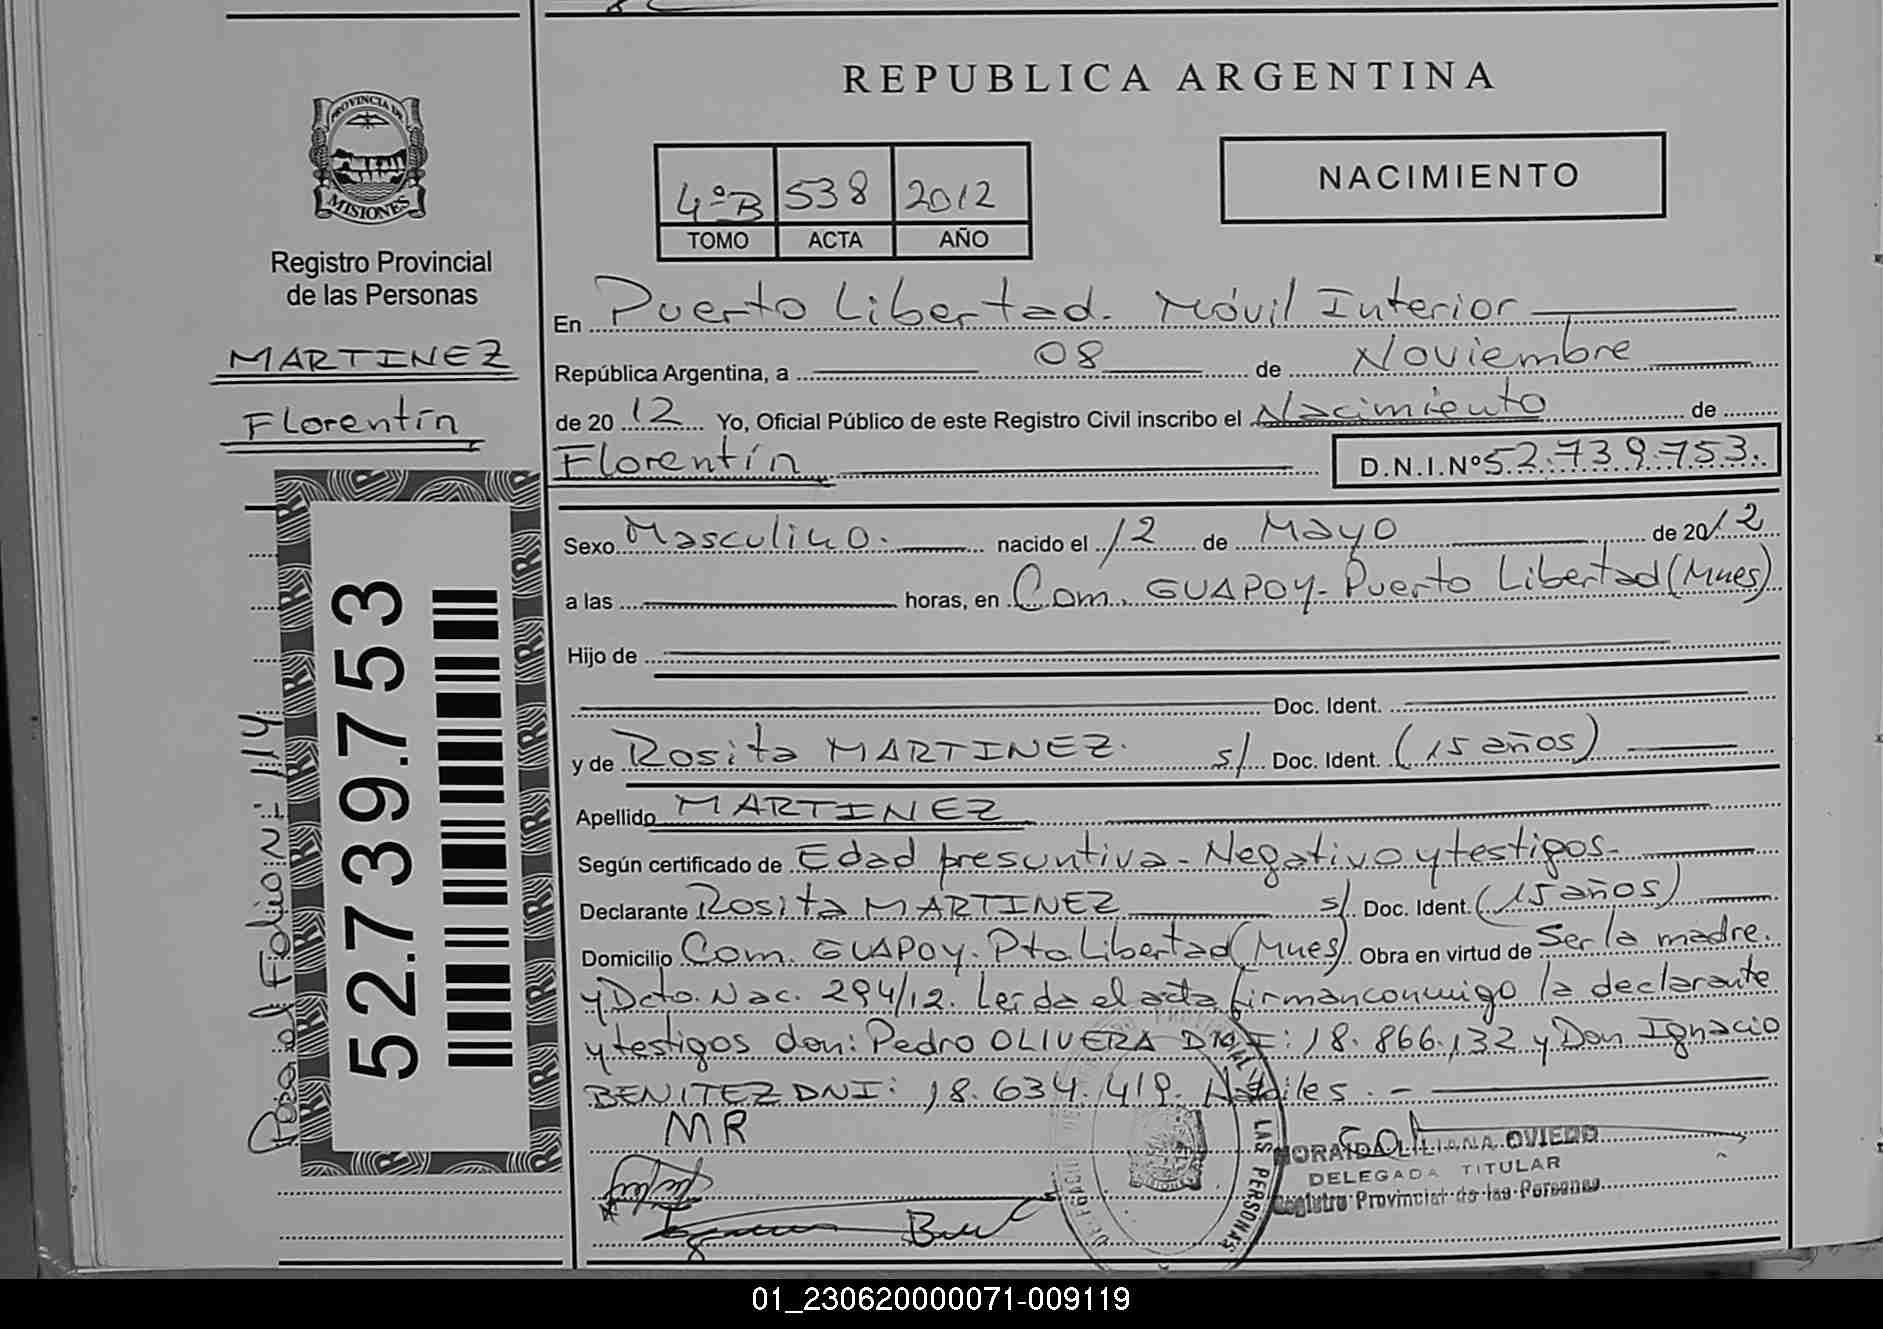 REPUBLICA ARGENTINA
PROVINCIA DE
MISIONES
Registro Provincial
de las Personas
MARTINEZ
Florentín
52.739.753
Posial Folio N: 114
4ºB 538 2012
TOMO ACTA AÑO
NACIMIENTO
En Puerto Libertad. Móvil Interior
República Argentina, a 08 de Noviembre
de 2012 Yo, Oficial Público de este Registro Civil inscribo el Nacimiento de
Florentín D.N.I.Nº 52.739.753.
Sexo Masculino. nacido el 12 de Mayo de 2012
a las horas, en Com. GUAPOY- Puerto Libertad (Mnes)
Hijo de
Doc. Ident.
y de Rosita MARTINEZ. s/ Doc. Ident. (15 años)
Apellido MARTINEZ
Según certificado de Edad presuntiva - Negativo y testigos.
Declarante Rosita MARTINEZ s/ Doc. Ident. (15 años)
Domicilio Com. GUAPOY. Pto. Libertad (Mnes) Obra en virtud de Ser la madre.
y Dcto. Nac. 294/12. Leída el acta firman conmigo la declarante
y testigos don: Pedro OLIVERA DNI: 18.866.132 y Don Ignacio
BENITEZ DNI: 18.634.419. Hábiles. -
MR
LAS PERSONAS
LILIANA OVIEDO
DELEGADA TITULAR
Registro Provincial de las Personas
01_230620000071-009119